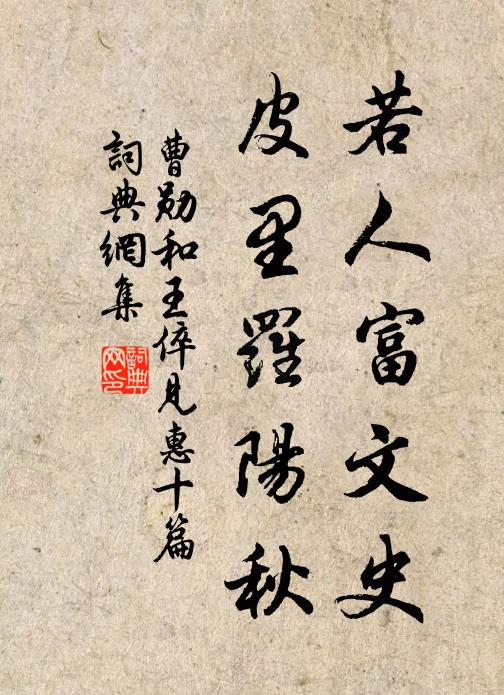 若人富文史
皮里羅陽秋
曹勛和王倅見惠十篇
詞典網集
詞典网印